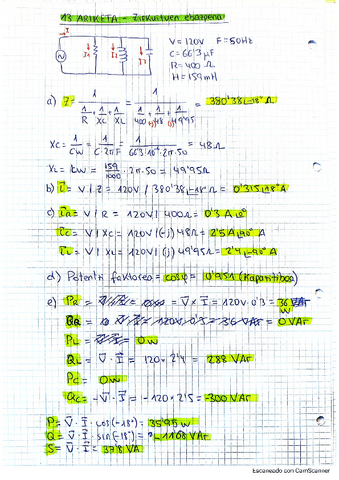 13 ARIKETA - Zirkuituen ebazpena
I
V = 120V F = 50Hz
C = 66'3 µF
R = 400 Ω
H = 159 mH
I1 I2 I3
a) Z = 1 / (1/R + 1/XC + 1/XL) = 1 / (1/400 + 1/48 + 1/49'95) = 380'38∟-18° Ω
XC = 1/CW = 1/C·2πF = 1/66'3·10⁻⁶·2π·50 = 48Ω
XL = LW = 159/1000 · 2π·50 = 49'95Ω
b) I = V / Z = 120V / 380'38∟-18° Ω = 0'315∟18° A
c) IR = V / R = 120V / 400Ω = 0'3 A∟0°
IC = V / XC = 120V / (-j) 48Ω = 2'5A∟90°
IL = V / XL = 120V / (j) 49'95Ω = 2'4∟-90° A
d) Potentzi faktorea = cosφ = 0'951 (Kapazitiboa)
e) PR = V · I = 120V · 0'3 = 36 W
QR = 0VAr
PL = 0W
QL = V · I = 120 · 2'4 = 288 VAr
PC = 0W
QC = -V · I = -120 · 2'5 = -300 VAr
P = V · I · cos(-18°) = 35'95 W
Q = V · I · sin(-18°) = -11'68 VAr
S = V · I = 37'8 VA
Escaneado con CamScanner